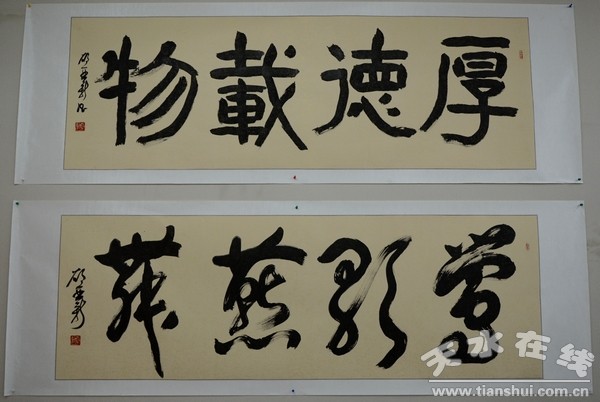 厚德載物
鶯歌燕舞
天水在线
www.tianshui.com.cn